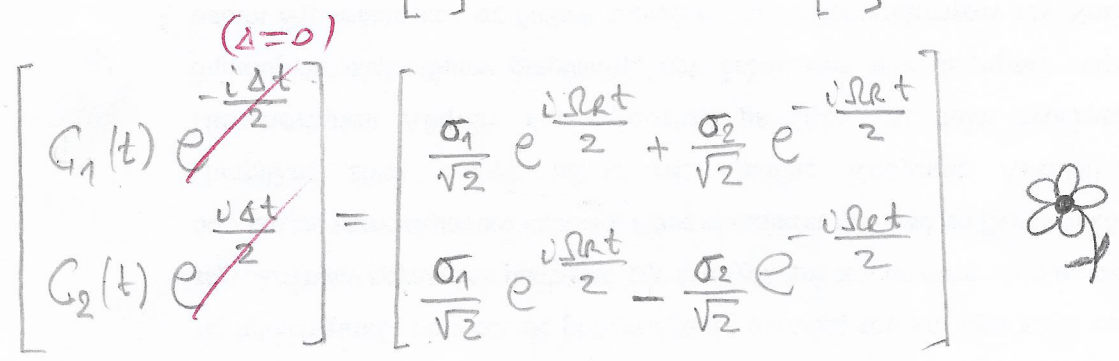 (Δ=0)
[C₁(t) e^{-iΔt/2}] = [σ₁/√2 e^{iΩ_R t/2} + σ₂/√2 e^{-iΩ_R t/2}]
[C₂(t) e^{iΔt/2}] = [σ₁/√2 e^{iΩ_R t/2} - σ₂/√2 e^{-iΩ_R t/2}]